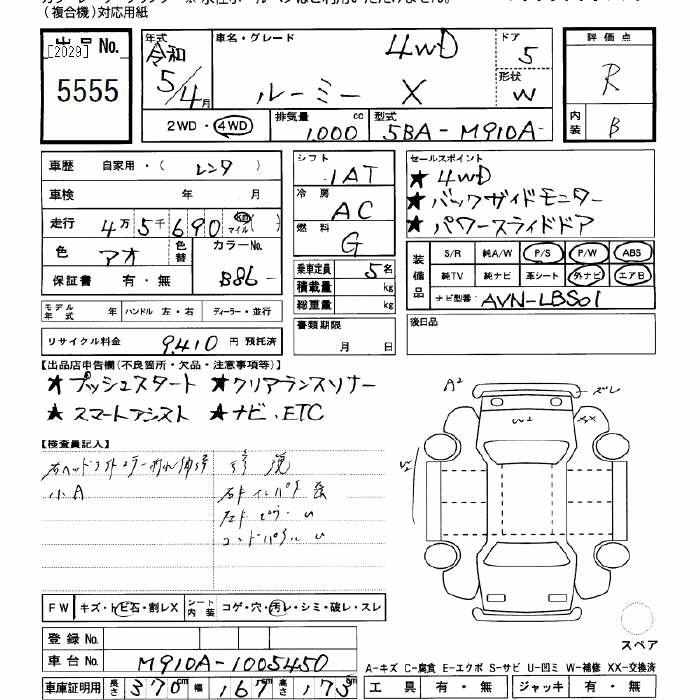 (複合機)対応用紙
出品 No.
[2029]
5555
年式 車名・グレード ドア 評価点
令和 4WD 5 R
5/4月 ルーミー X 形状 W
2WD・4WD 排気量 1,000 cc 型式 5BA-M910A- 内装 B
車歴 自家用・(レンタ)
車検 年 月
走行 4万5千690 km マイル( )
色 アオ 色替 カラーNo. B86-
保証書 有・無
モデル年式 年 ハンドル 左・右 ディーラー・並行
リサイクル料金 9,410円 預託済
シフト IAT
冷房 AC
燃料 G
乗車定員 5名
積載量 kg
総重量 kg
書類期限
月 日
セールスポイント
★4WD
★バックサイドモニター
★パワースライドドア
装備品 S/R 純A/W P/S P/W ABS
純TV 純ナビ 革シート 外ナビ エアB
ナビ型番: AVN-LBS01
後日品
【出品店申告欄(不良箇所・欠品・注意事項等)】
★プッシュスタート ★クリアランスソナー
★スマートアシスト ★ナビ、ETC
【検査員記入】
小A
A2
ズレ
W2
XX
FW キズ・トビ石・割レX シート内装 コゲ・穴・汚レ・シミ・破レ・スレ
登録 No.
車台 No. M910A-1005450
スペア
A-キズ C-腐食 E-エクボ S-サビ U-凹ミ W-補修 XX-交換済
車庫証明用 長さ 370cm 幅 167cm 高さ 173cm
工具 有・無 ジャッキ 有・無